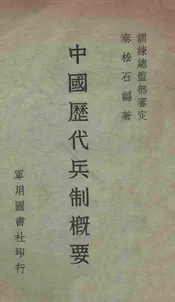 訓練總監部審定
秦松石編著
中國歷代兵制概要
軍用圖書社印行